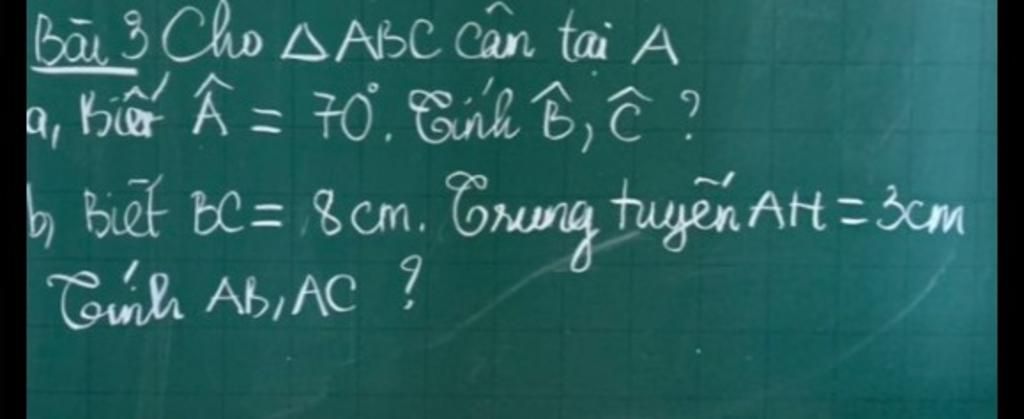 Bài 3 Cho △ABC cân tại A
a, Biết Â = 70°. Tính B̂, Ĉ ?
b, Biết BC = 8cm. Trung tuyến AH = 3cm
Tính AB, AC ?